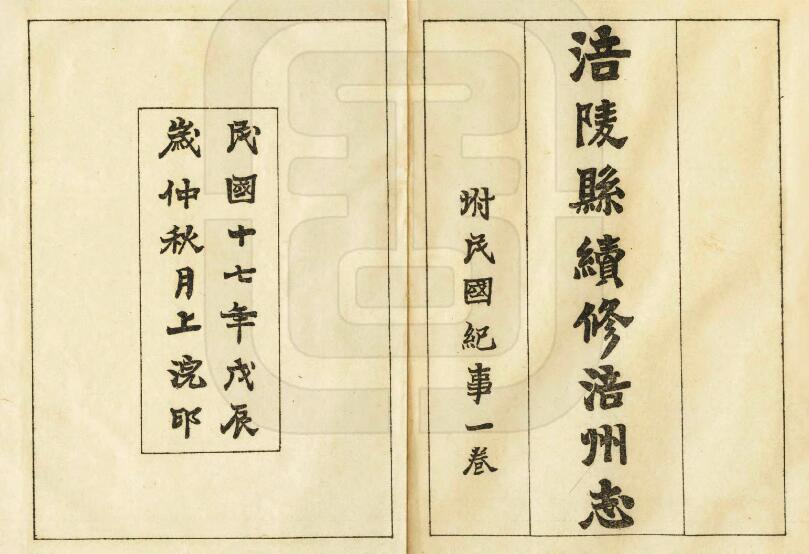 涪陵縣續修涪州志
坿民國紀事一卷
民國十七年戊辰
歲仲秋月上浣印